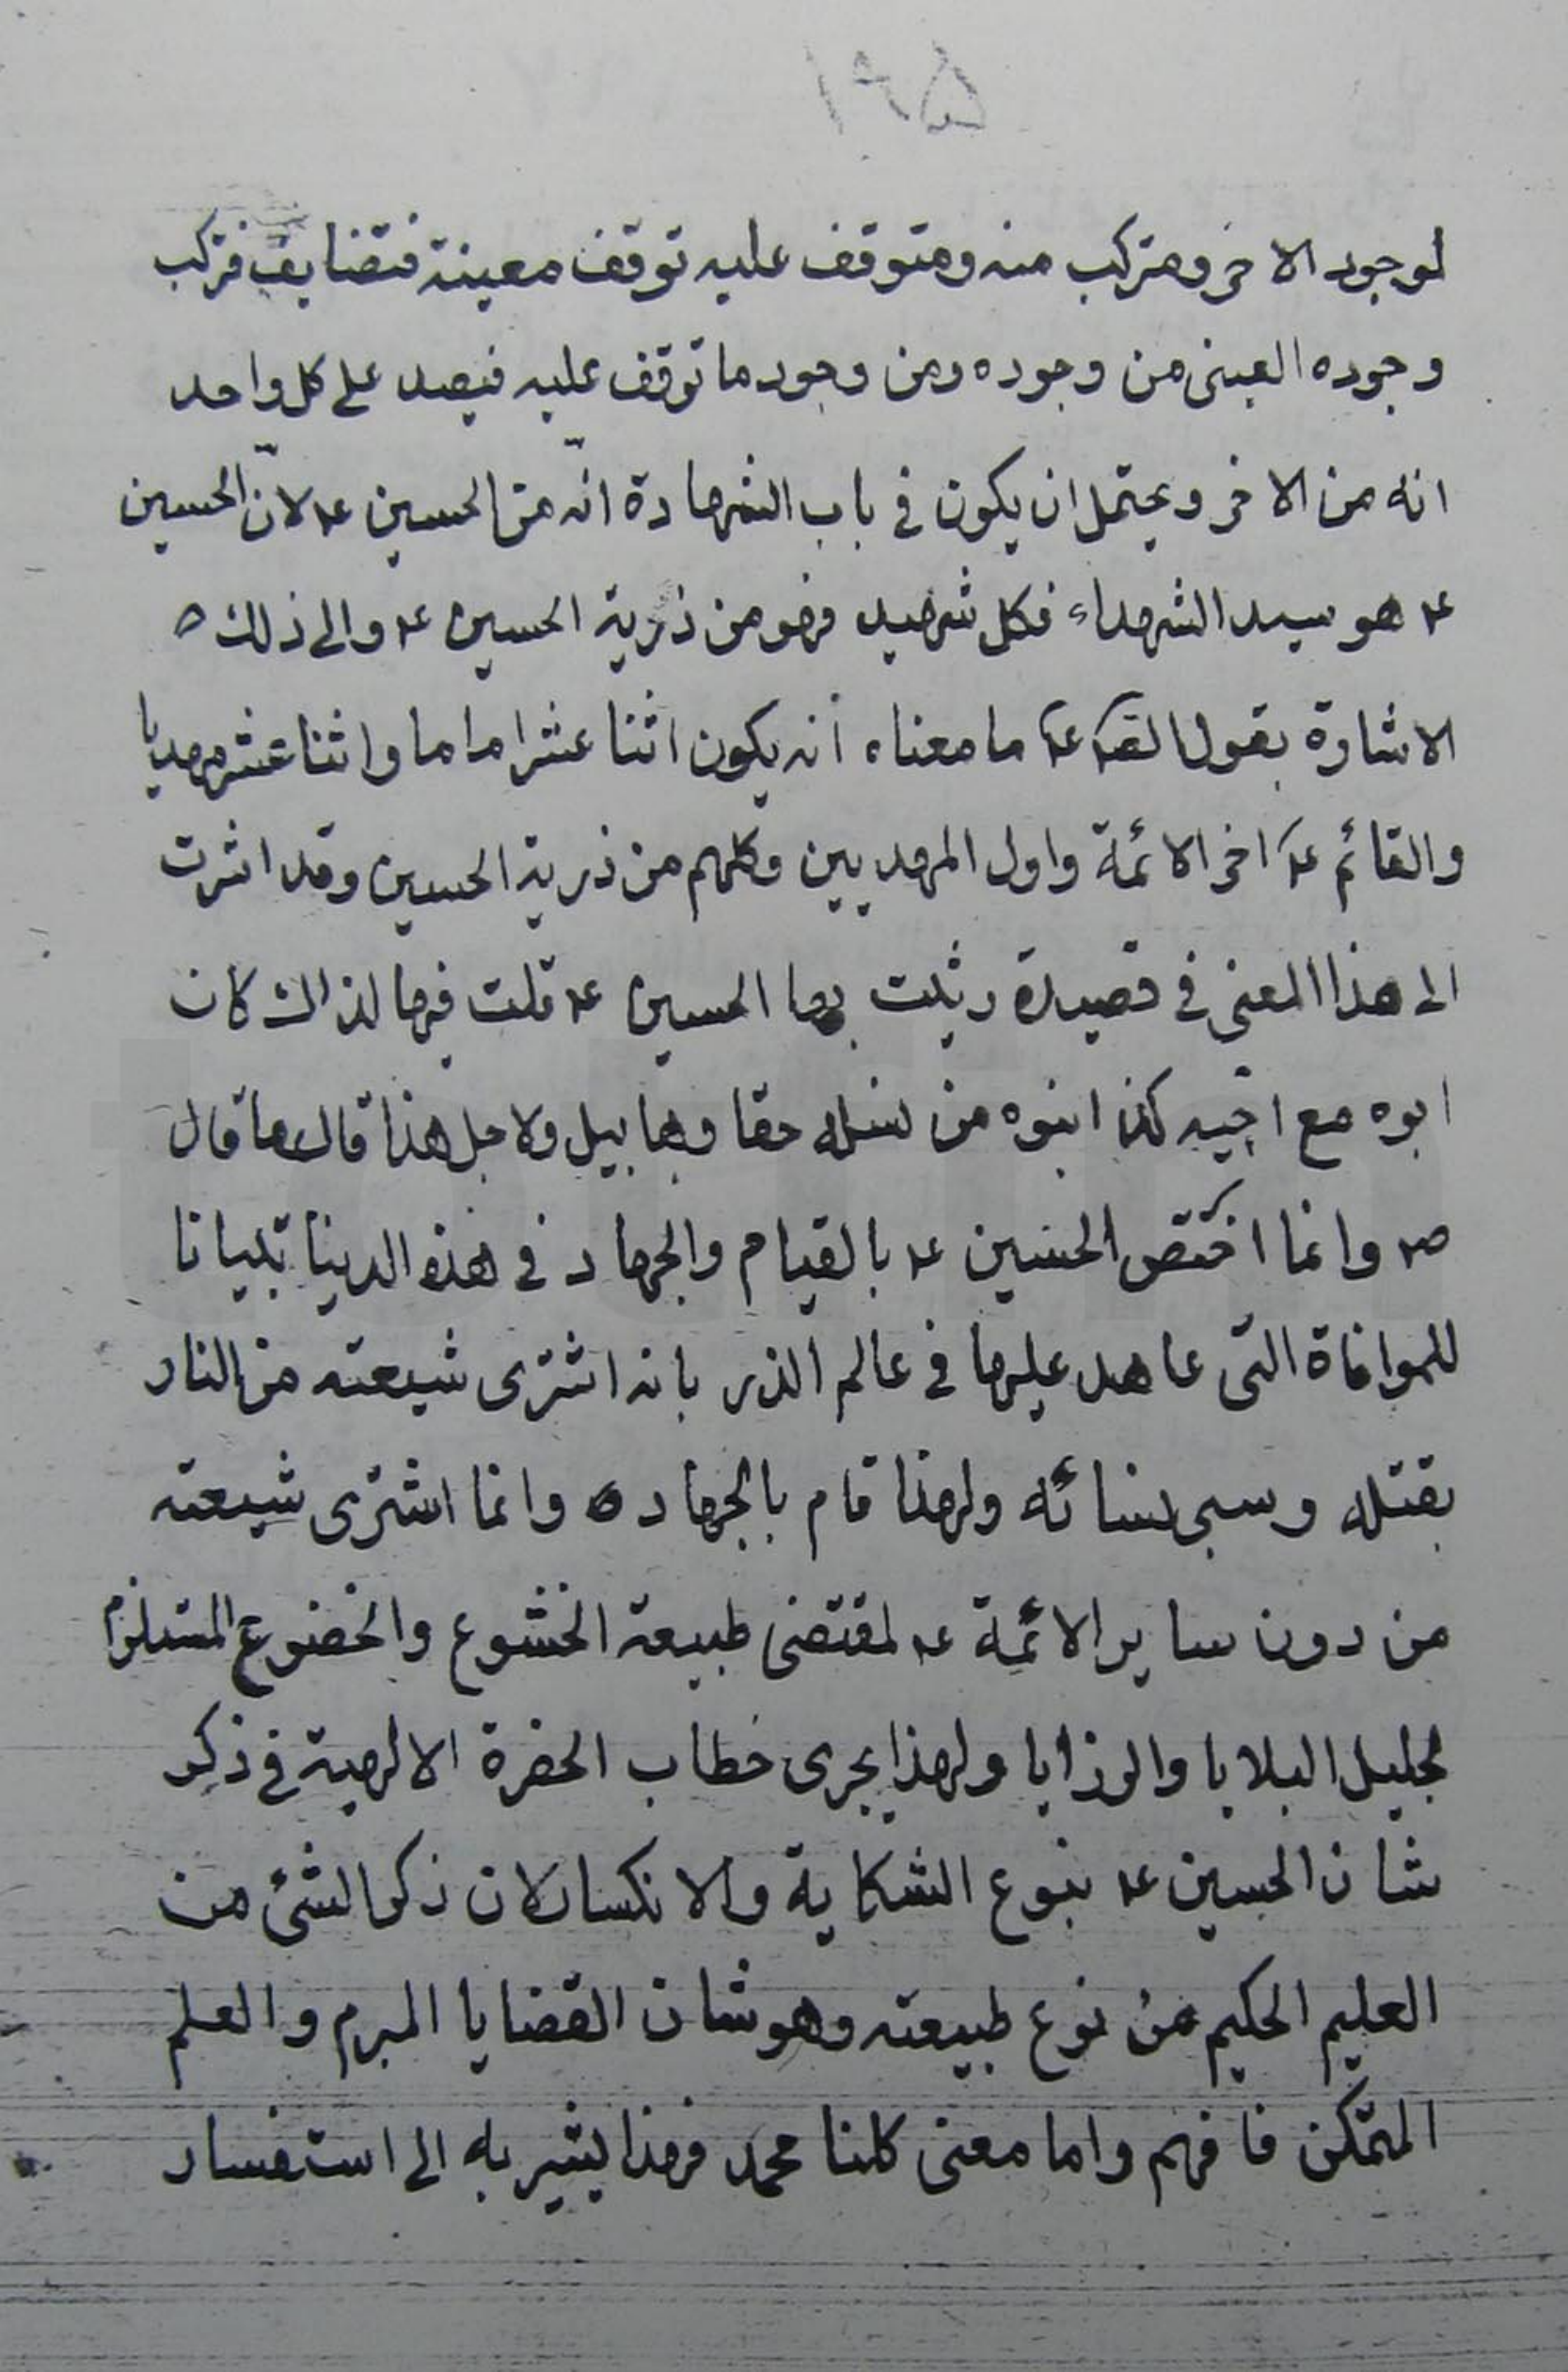 لوجود الاخر ومتركب منه ومتوقف عليه توقف معينة فتضايف فتركب
وجوده العينى من وجوده ومن وجود ما توقف عليه فيصد على كل واحد
انه من الاخر ويحتمل ان يكون فى باب الشهادة انّه من الحسين ع لانّ الحسين
ع هو سيد الشهداء فكل شهيد فهو من ذرية الحسين ع والى ذلك
الاشارة بقول الصـ ع ما معناه انه يكون اثنا عشر اماما واثنا عشر مهديا
والقائم ع اخر الائمة واول المهديين وكلهم من ذرية الحسين وقد اشرت
الى هذا المعنى فى قصيدة رثيت بها الحسين ع قلت فيها لذالك كان
ابوه مع اخيه كذا ابنوه من نسله حقا وهابيل ولاجل هذا قال ما قال
ص وانما اختص الحسين ع بالقيام والجهاد فى هذه الدينا تبيانا
للموافاة التى عاهد عليها فى عالم الذر بانه اشترى شيعته من النار
بقتله وسبى نسائه ولهذا قام بالجهاد ه وانما اشترى شيعته
من دون ساير الائمة ع لمقتضى طبيعة الخشوع والخضوع المستلزم
لجليل البلايا والرزايا ولهذا يجرى خطاب الحضرة الالهية فى ذكر
شان الحسين ع بنوع الشكاية والانكسار لان ذكر الشئ من
العليم الحكيم من نوع طبيعته وهو شان القضايا المبرم والعلم
المتمكن فافهم واما معنى كلنا محمد فهذا يشير به الى استفسار